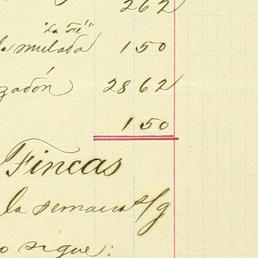 262
"La Fé"
la mulada 150
zadón 2862
150
Fincas
la semana s/g
o sigue: